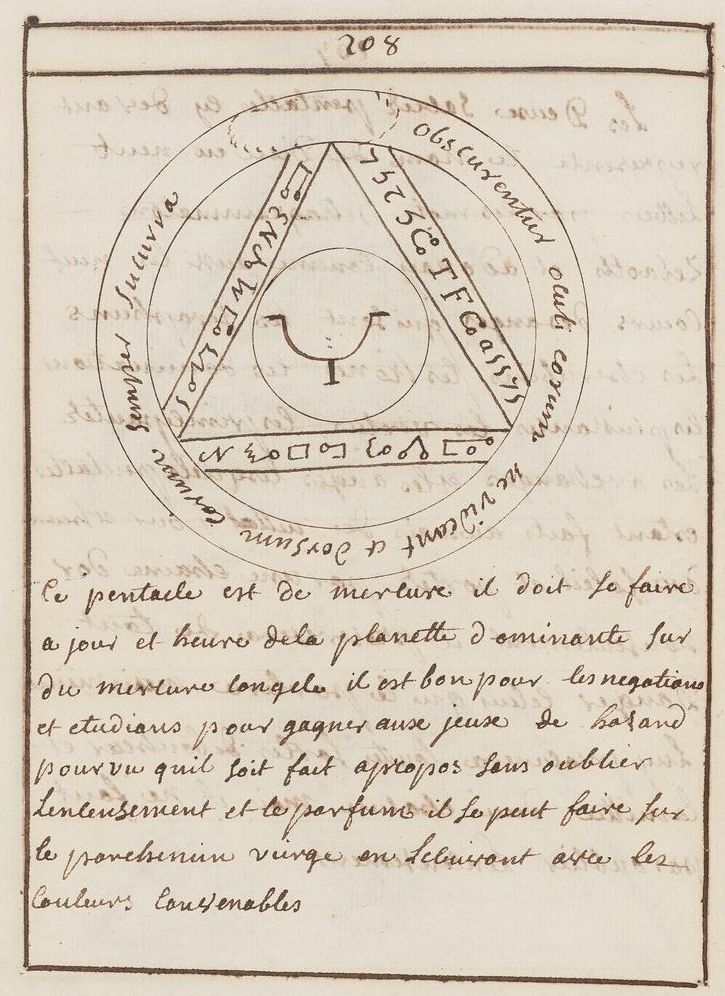 208
obscurentur oculi eorum ne videant et dorsum eorum semper incurva
Ce pentacle est de mercure il doit se faire
a jour et heure dela planette dominante sur
du mercure congele il est bon pour les negotians
et etudians pour gagner aux jeux de hasard
pourvu quil soit fait apropos sans oublier
Lencensement et le parfum il se peut faire sur
le parchemin vierge en Lecrivant avec les
Couleurs Convenables